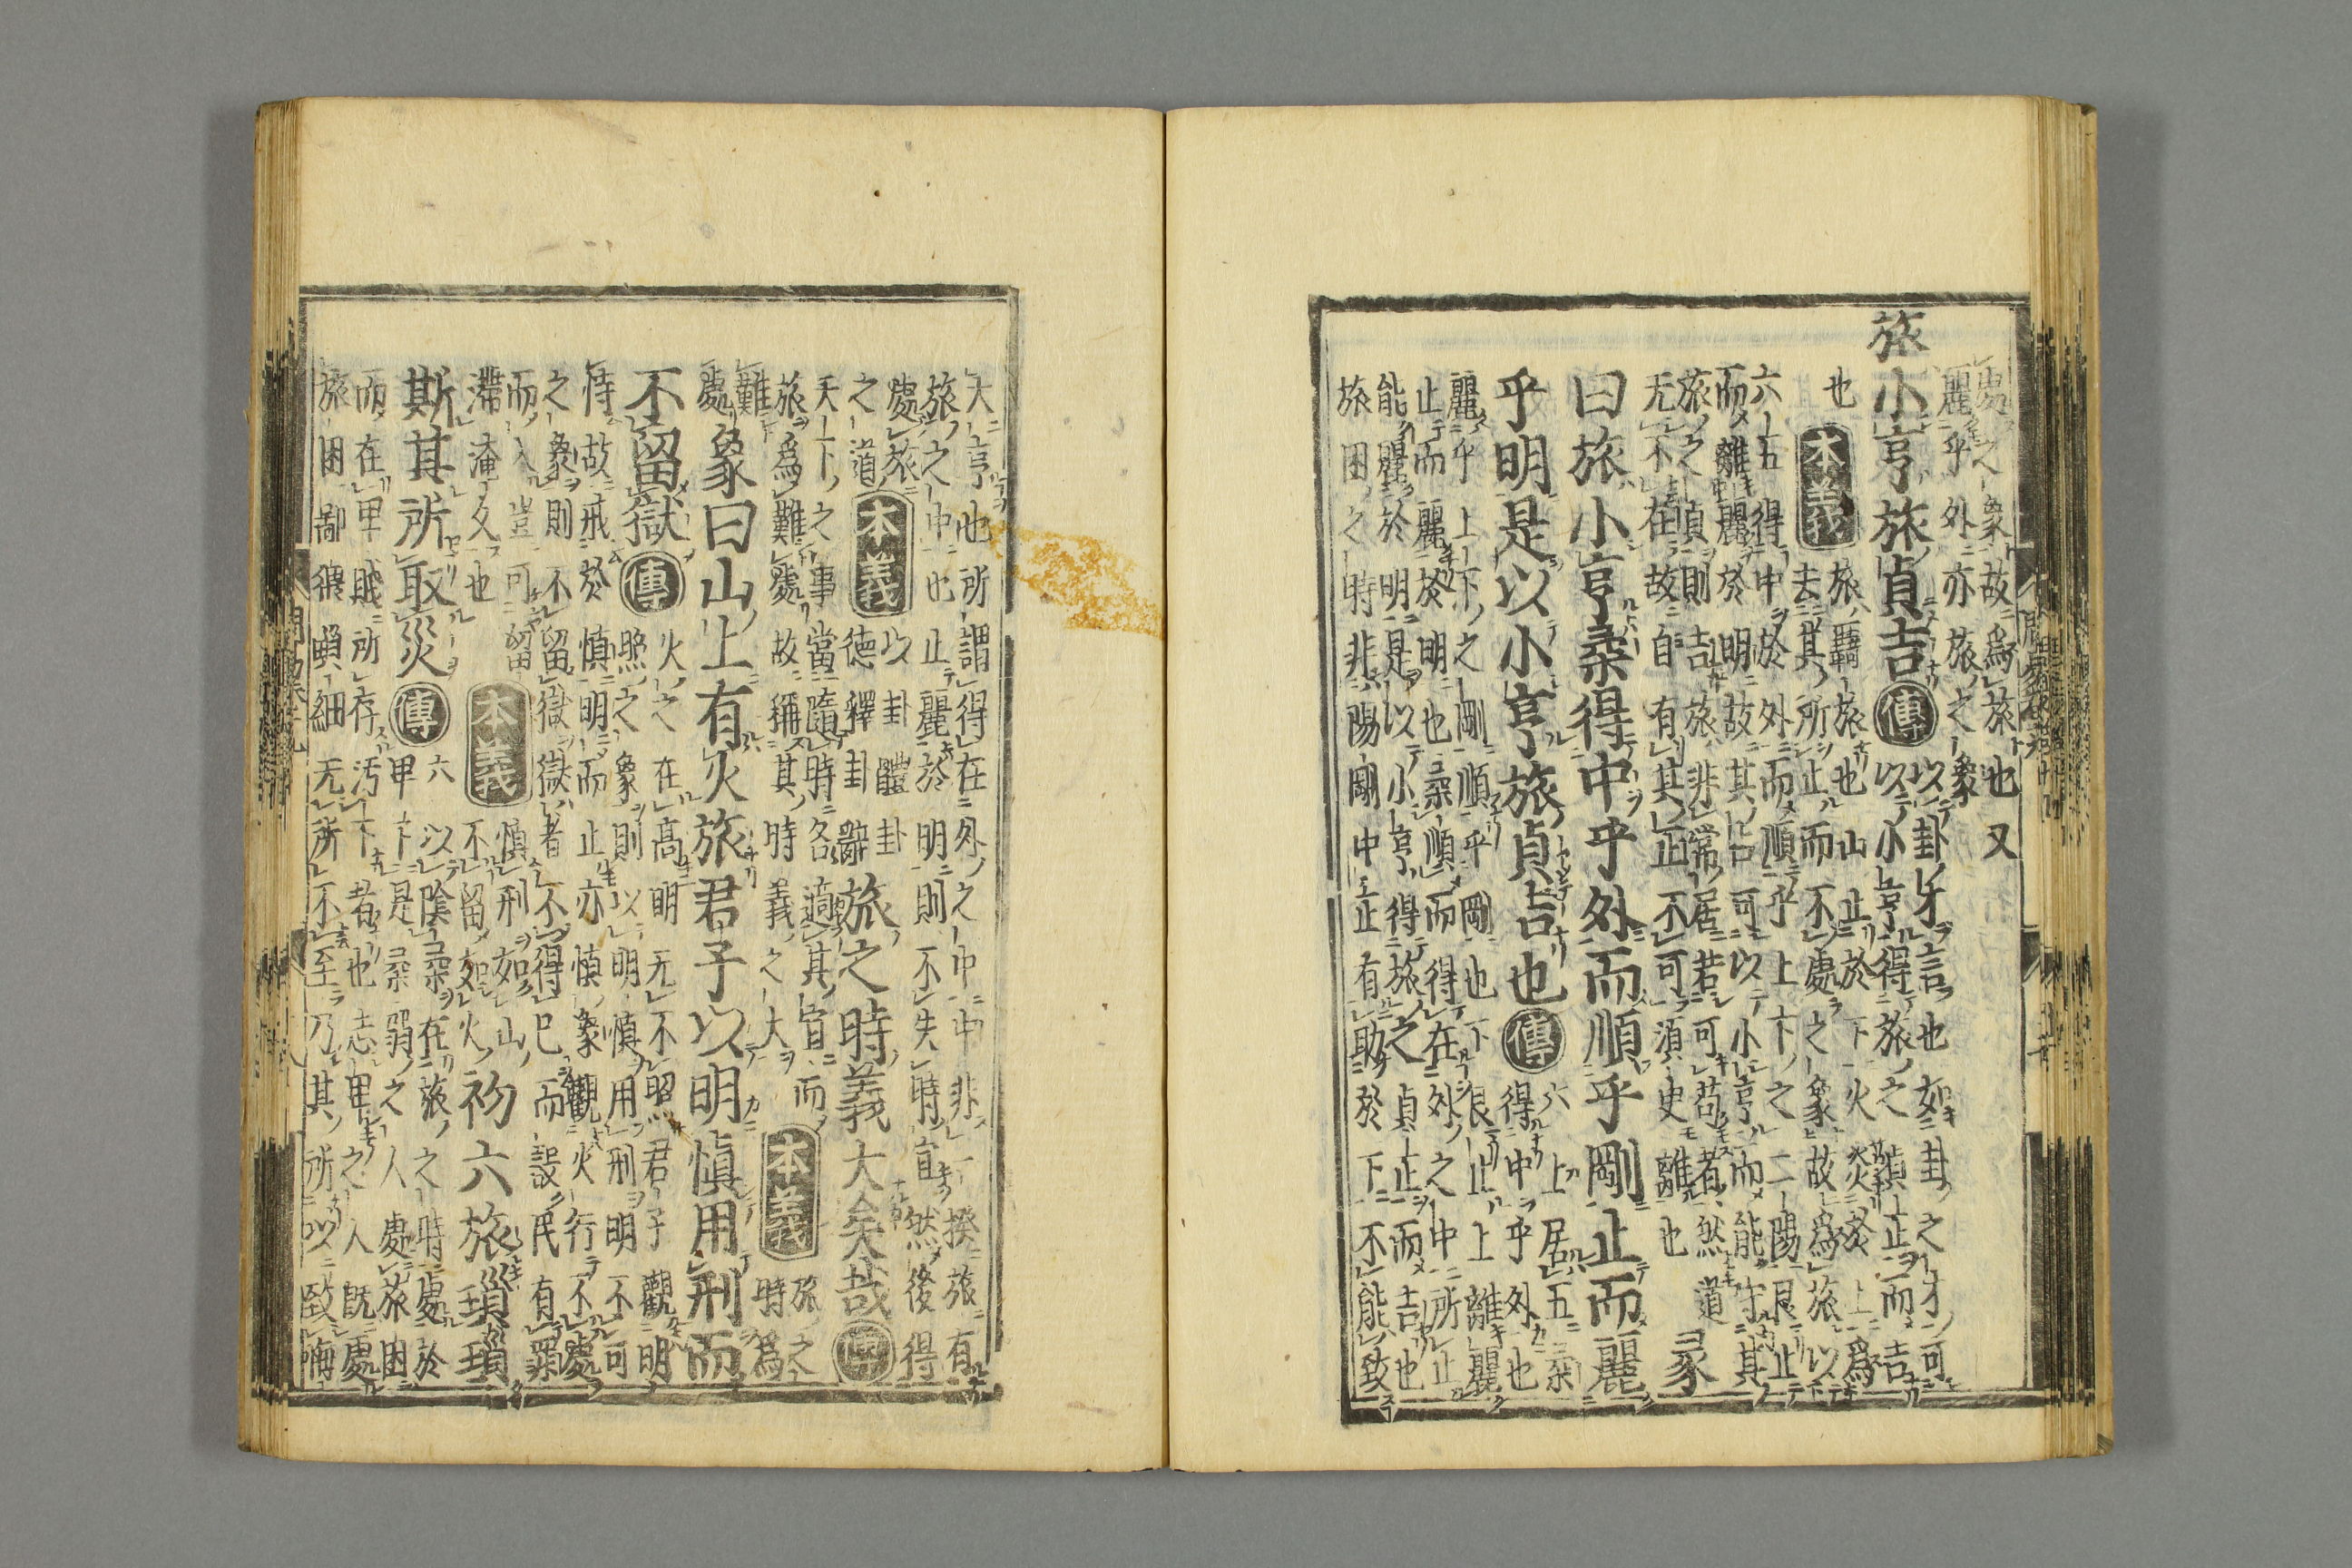 處之象故爲旅也又
麗乎外亦旅之象
旅小亨旅貞吉 傳 以卦才言也如卦之才可
以小亨得旅之貞正而吉
也 本義 旅羇旅也山止於下火炎於上爲
去其所止而不處之象故爲旅以
六五得中於外而順乎上下之二陽艮止
而離麗於明故其占可以小亨而能守其
旅之貞則吉旅非常居若可苟者然道
无不在故自有其正不可須臾離也 彖
曰旅小亨柔得中乎外而順乎剛止而麗
乎明是以小亨旅貞吉也 傳 六上居五柔
得中乎外也
麗乎上下之剛順乎剛也下艮止上離麗
止而麗於明也柔順而得在外之中所止
能麗於明是以小亨得旅之貞正而吉也
旅困之時非陽剛中正有助於下不能致
大亨也所謂得在外之中中非一揆旅有
旅之中也止麗於明則不失時宜然後得
處旅
之道 本義 以卦體卦
德釋卦辭 旅之時義大矣哉 傳
天下之事當隨時各適其宜而
旅爲難處故稱其時義之大 本義 旅之
時爲
難
處 象曰山上有火旅君子以明慎用刑而
不留獄 傳 火之在高明无不照君子觀明
照之象則以明慎用刑明不可
恃故戒於慎明而止亦慎象觀火行不處
之象則不留獄獄者不得已而設民有罪
而入豈可留
滯淹久也 本義 慎刑如山
不留如火 初六旅瑣瑣
斯其所取災 傳 六以陰柔在旅之時處於
卑下是柔弱之人處旅困
而在卑賤所存污下者也志卑之人既處
旅困鄙猥瑣細无所不至乃其所以致悔